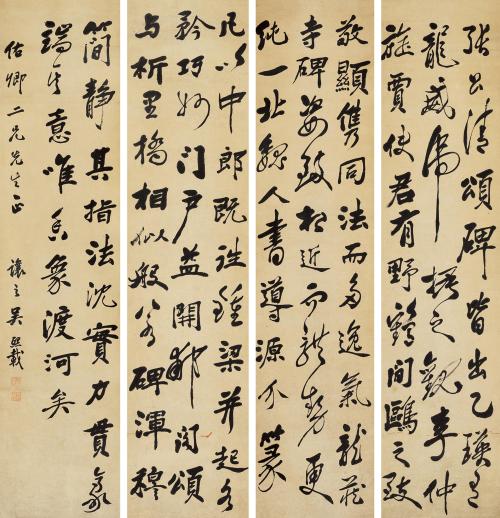 張公清頌碑皆出乙瑛有
龍威虎振之觀李仲
璇賈使君有野鶴閒鷗之致
敬顯儁同法而多逸氣龍藏
寺碑姿致相近而體勢更
純一北魏人書導源分篆
凡以中郎既往鍾梁并起各
矜巧妙門戶益開郙閣頌
与析里橋相似般若碑渾穆
簡靜其指法沈實力貫豪
端其意唯香象渡河矣
佑卿二兄先生正 讓之吳熙載